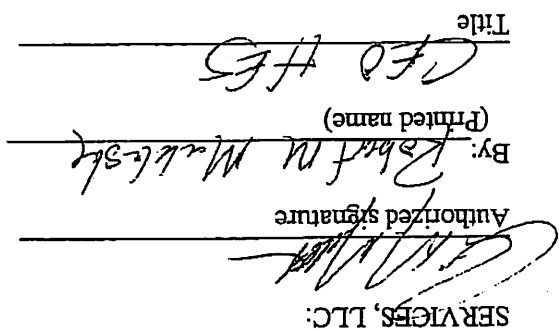 SERVICES, LLC:
Authorized signature
By: Robert M
(Printed name)
CEO HES
Title